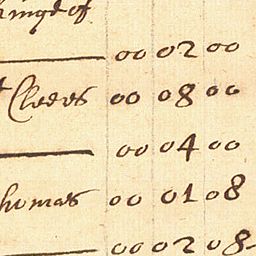 of
00 02 00
Clrees 00 08 00
00 04 00
homas 00 01 08
00 02 08